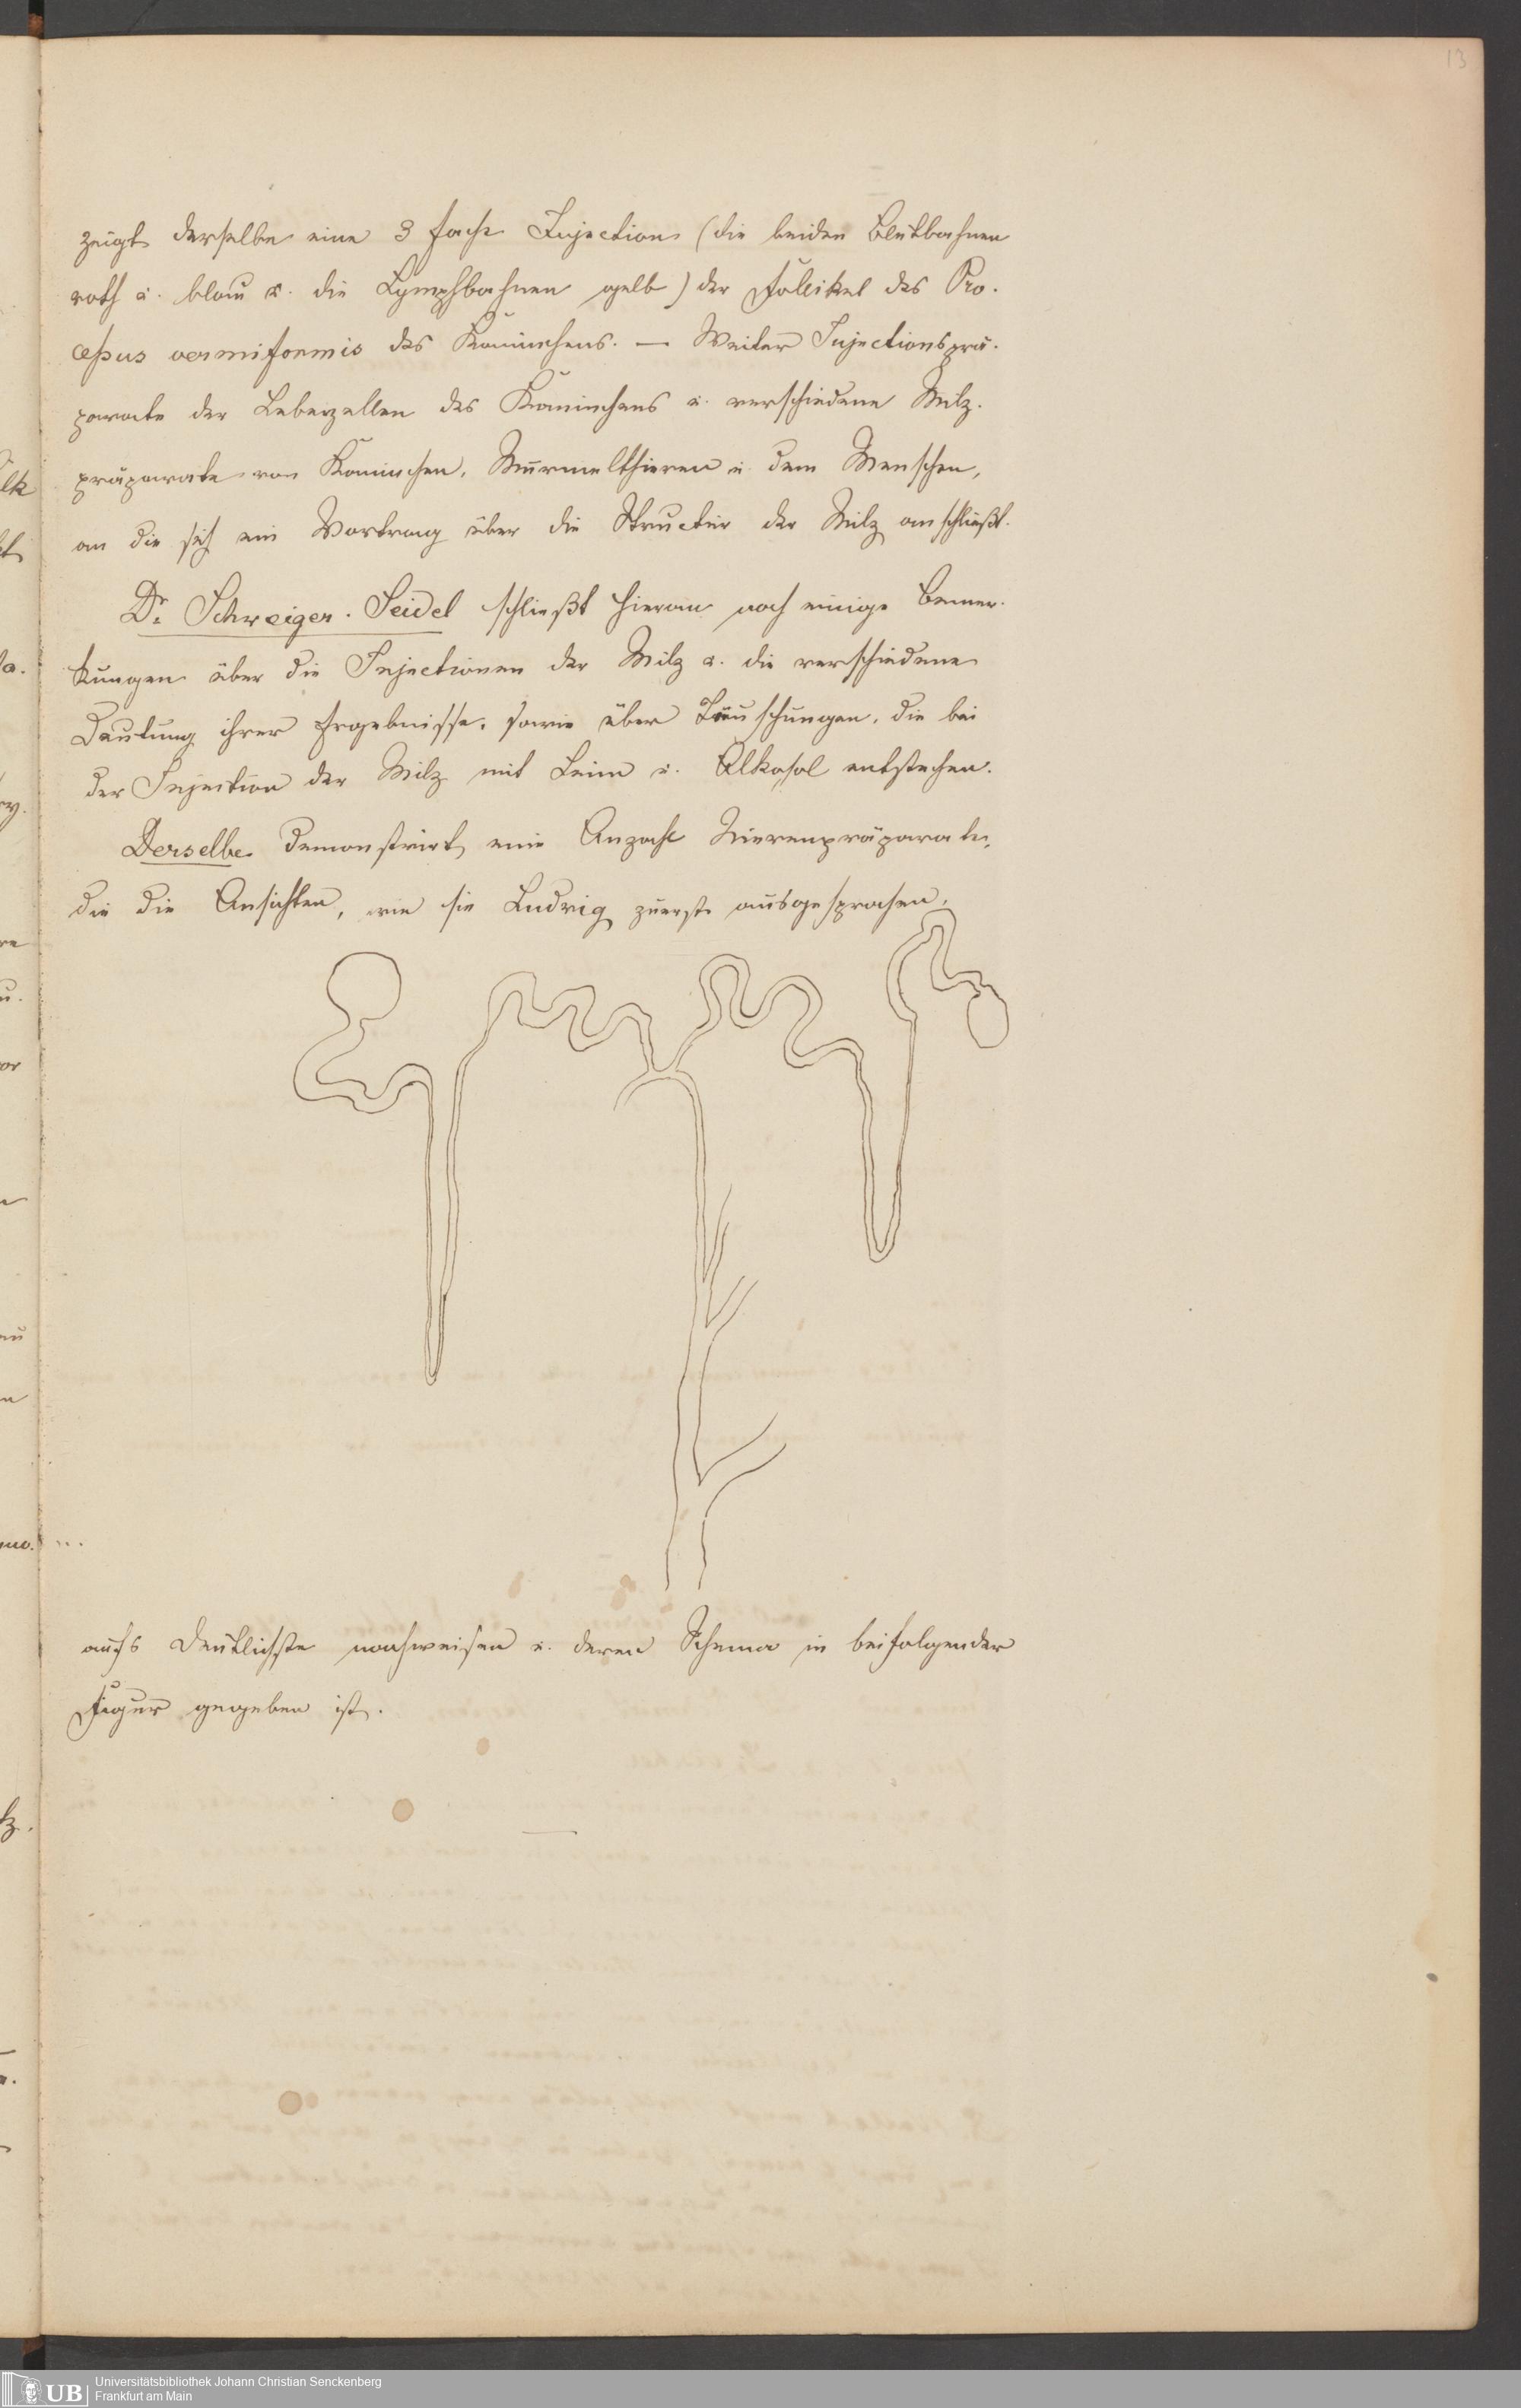 13
zeigt derselbe eine 3 fache Injection (die beiden Blutbahnen
roth u. blau u. die Lymphbahnen gelb) der Follikel des Pro-
cessus vermiformis des Kaninchens. — Weiter Injectionsprä-
parate der Leberzellen des Kaninchens u. verschiedene Milz-
präparate von Kaninchen, Murmelthieren u. dem Menschen,
an die sich ein Vortrag über die Structur der Milz anschließt.
Dr. Schweiger-Seidel schließt hieran noch einige Bemer-
kungen über die Injectionen der Milz u. die verschiedene
Deutung ihrer Ergebnisse, sowie über Täuschungen, die bei
der Injection der Milz mit Leim u. Alkohol entstehen.
Derselbe demonstrirt eine Anzahl Nierenpräparate,
die die Ansichten, wie sie Ludwig zuerst ausgesprochen,
aufs Deutlichste nachweisen u. deren Schema in beifolgender
Figur gegeben ist.
UB
Universitätsbibliothek Johann Christian Senckenberg
Frankfurt am Main